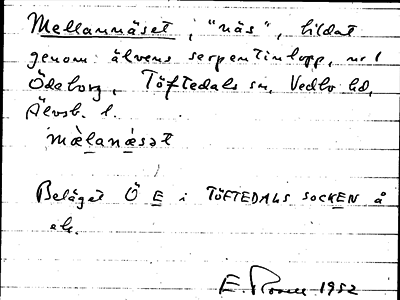 Mellannäset, "näs", bildat
genom älvens serpentinlopp, nr 1
Ödeborg, Töftedals sn, Vedbo hd,
Älvsb. l.
mèlanèsət
Beläget Ö E i TÖFTEDALS SOCKEN å
ek.
E. 1952